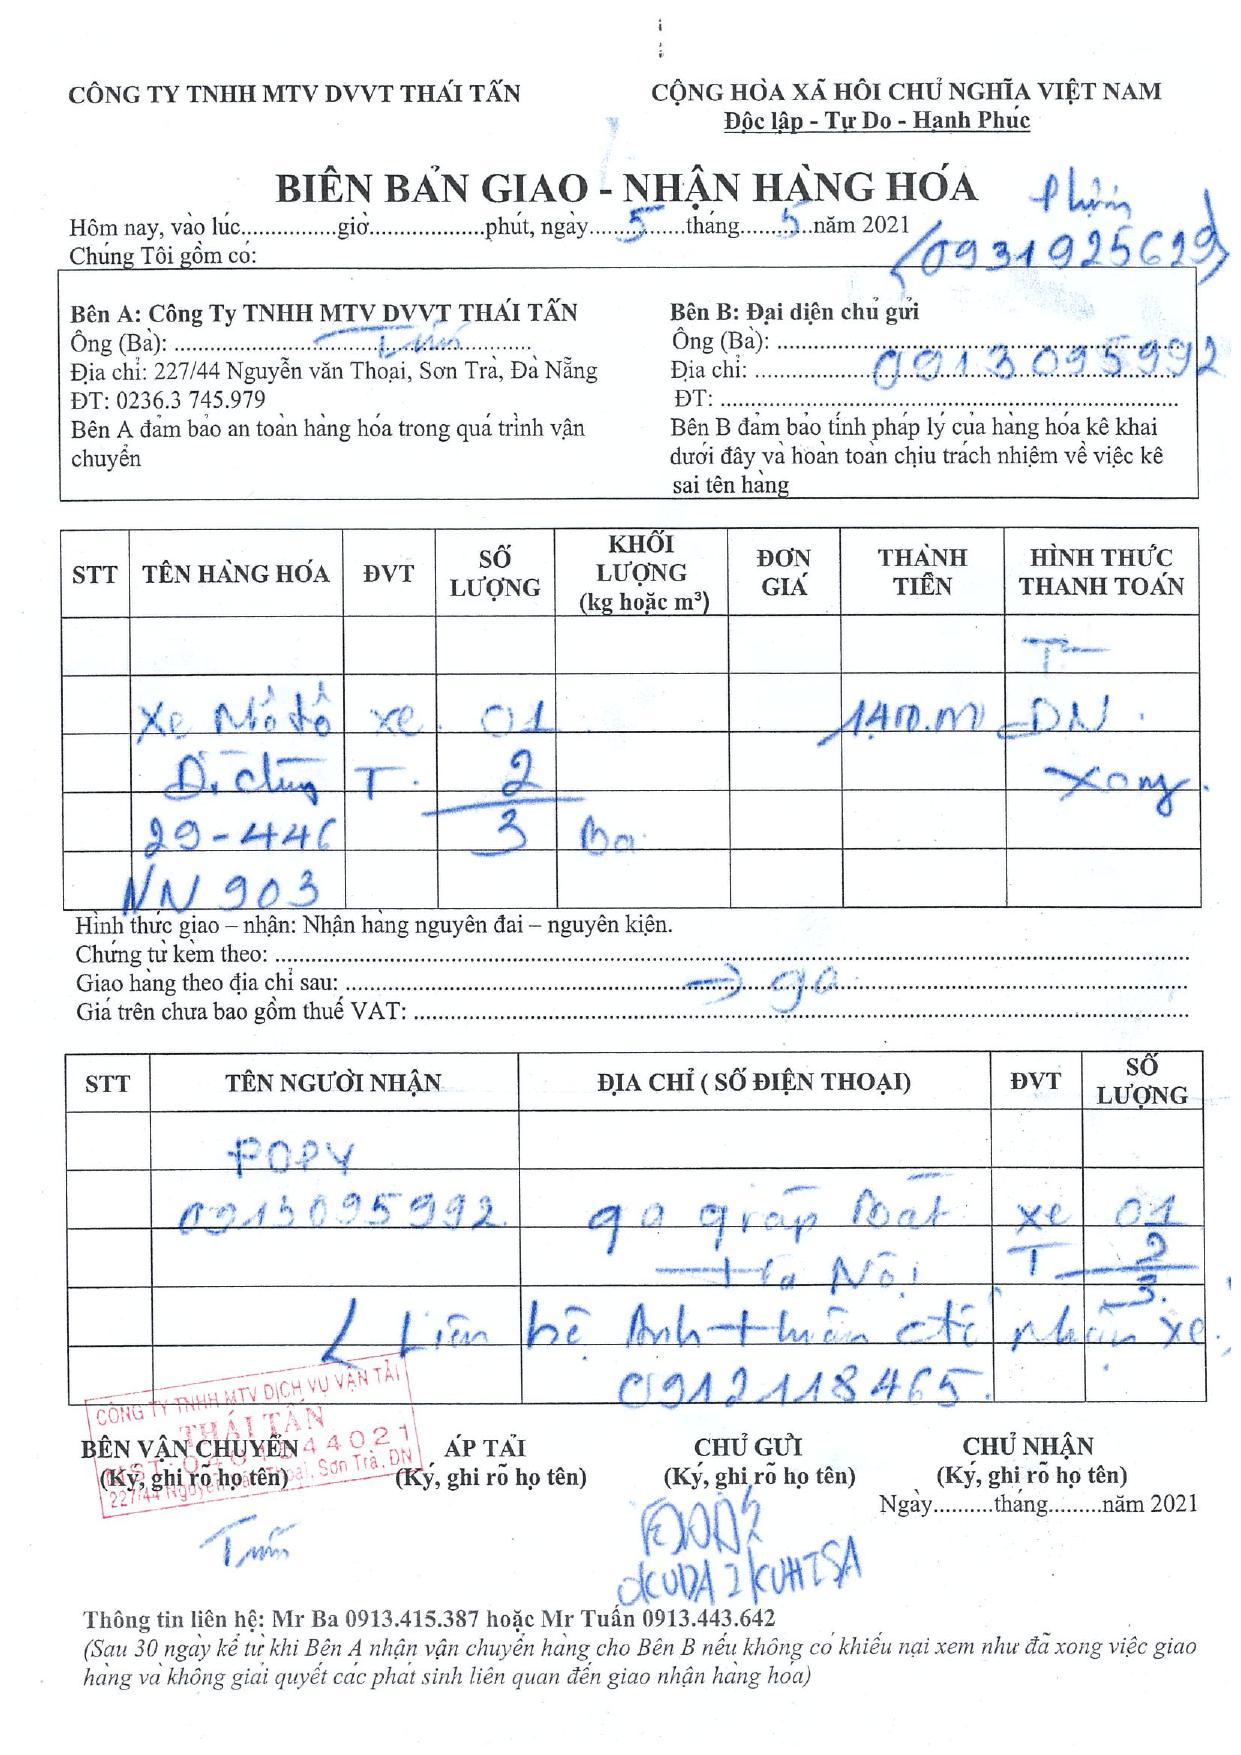 CÔNG TY TNHH MTV DVVT THÁI TẤN
CỘNG HÒA XÃ HÔI CHỦ NGHĨA VIỆT NAM
Độc lập - Tự Do - Hạnh Phúc
BIÊN BẢN GIAO - NHẬN HÀNG HÓA
Hôm nay, vào lúc................giờ...................phút, ngày......5......tháng......5...năm 2021
(0931925629)
Chúng Tôi gồm có:
Bên A: Công Ty TNHH MTV DVVT THÁI TẤN
Ông (Bà): ..........Tuấn..........
Địa chỉ: 227/44 Nguyễn văn Thoại, Sơn Trà, Đà Nẵng
ĐT: 0236.3 745.979
Bên A đảm bảo an toàn hàng hóa trong quá trình vận
chuyển
Bên B: Đại diện chủ gửi
Ông (Bà): ..........
Địa chỉ: ..........0913095992
ĐT: ..........
Bên B đảm bảo tính pháp lý của hàng hóa kê khai
dưới đây và hoàn toàn chịu trách nhiệm về việc kê
sai tên hàng
STT TÊN HÀNG HÓA ĐVT SỐ LƯỢNG KHỐI LƯỢNG (kg hoặc m³) ĐƠN GIÁ THÀNH TIỀN HÌNH THỨC THANH TOÁN
Xe Mô tô xe 01 ĐN
T. 2 Xong.
29-446 3 Ba
NN 903
Hình thức giao – nhận: Nhận hàng nguyên đai – nguyên kiện.
Chứng từ kèm theo: ..........
Giao hàng theo địa chỉ sau: ..........→ ga..........
Giá trên chưa bao gồm thuế VAT: ..........
STT TÊN NGƯỜI NHẬN ĐỊA CHỈ ( SỐ ĐIỆN THOẠI) ĐVT SỐ LƯỢNG
POPY
0913095992 ga giáp Bát xe 01
Hà Nội T 2
3.
Liên hệ Anh Thuần nhận xe
0912118465.
CÔNG TY TNHH MTV DỊCH VỤ VẬN TẢI
THÁI TẤN
227/44 Nguyễn Văn Thoại, Sơn Trà, ĐN
BÊN VẬN CHUYỂN ÁP TẢI CHỦ GỬI CHỦ NHẬN
(Ký, ghi rõ họ tên) (Ký, ghi rõ họ tên) (Ký, ghi rõ họ tên) (Ký, ghi rõ họ tên)
Ngày..........tháng........năm 2021
Tuấn
OKUDA IKUHISA
Thông tin liên hệ: Mr Ba 0913.415.387 hoặc Mr Tuấn 0913.443.642
(Sau 30 ngày kể từ khi Bên A nhận vận chuyển hàng cho Bên B nếu không có khiếu nại xem như đã xong việc giao
hàng và không giải quyết các phát sinh liên quan đến giao nhận hàng hóa)